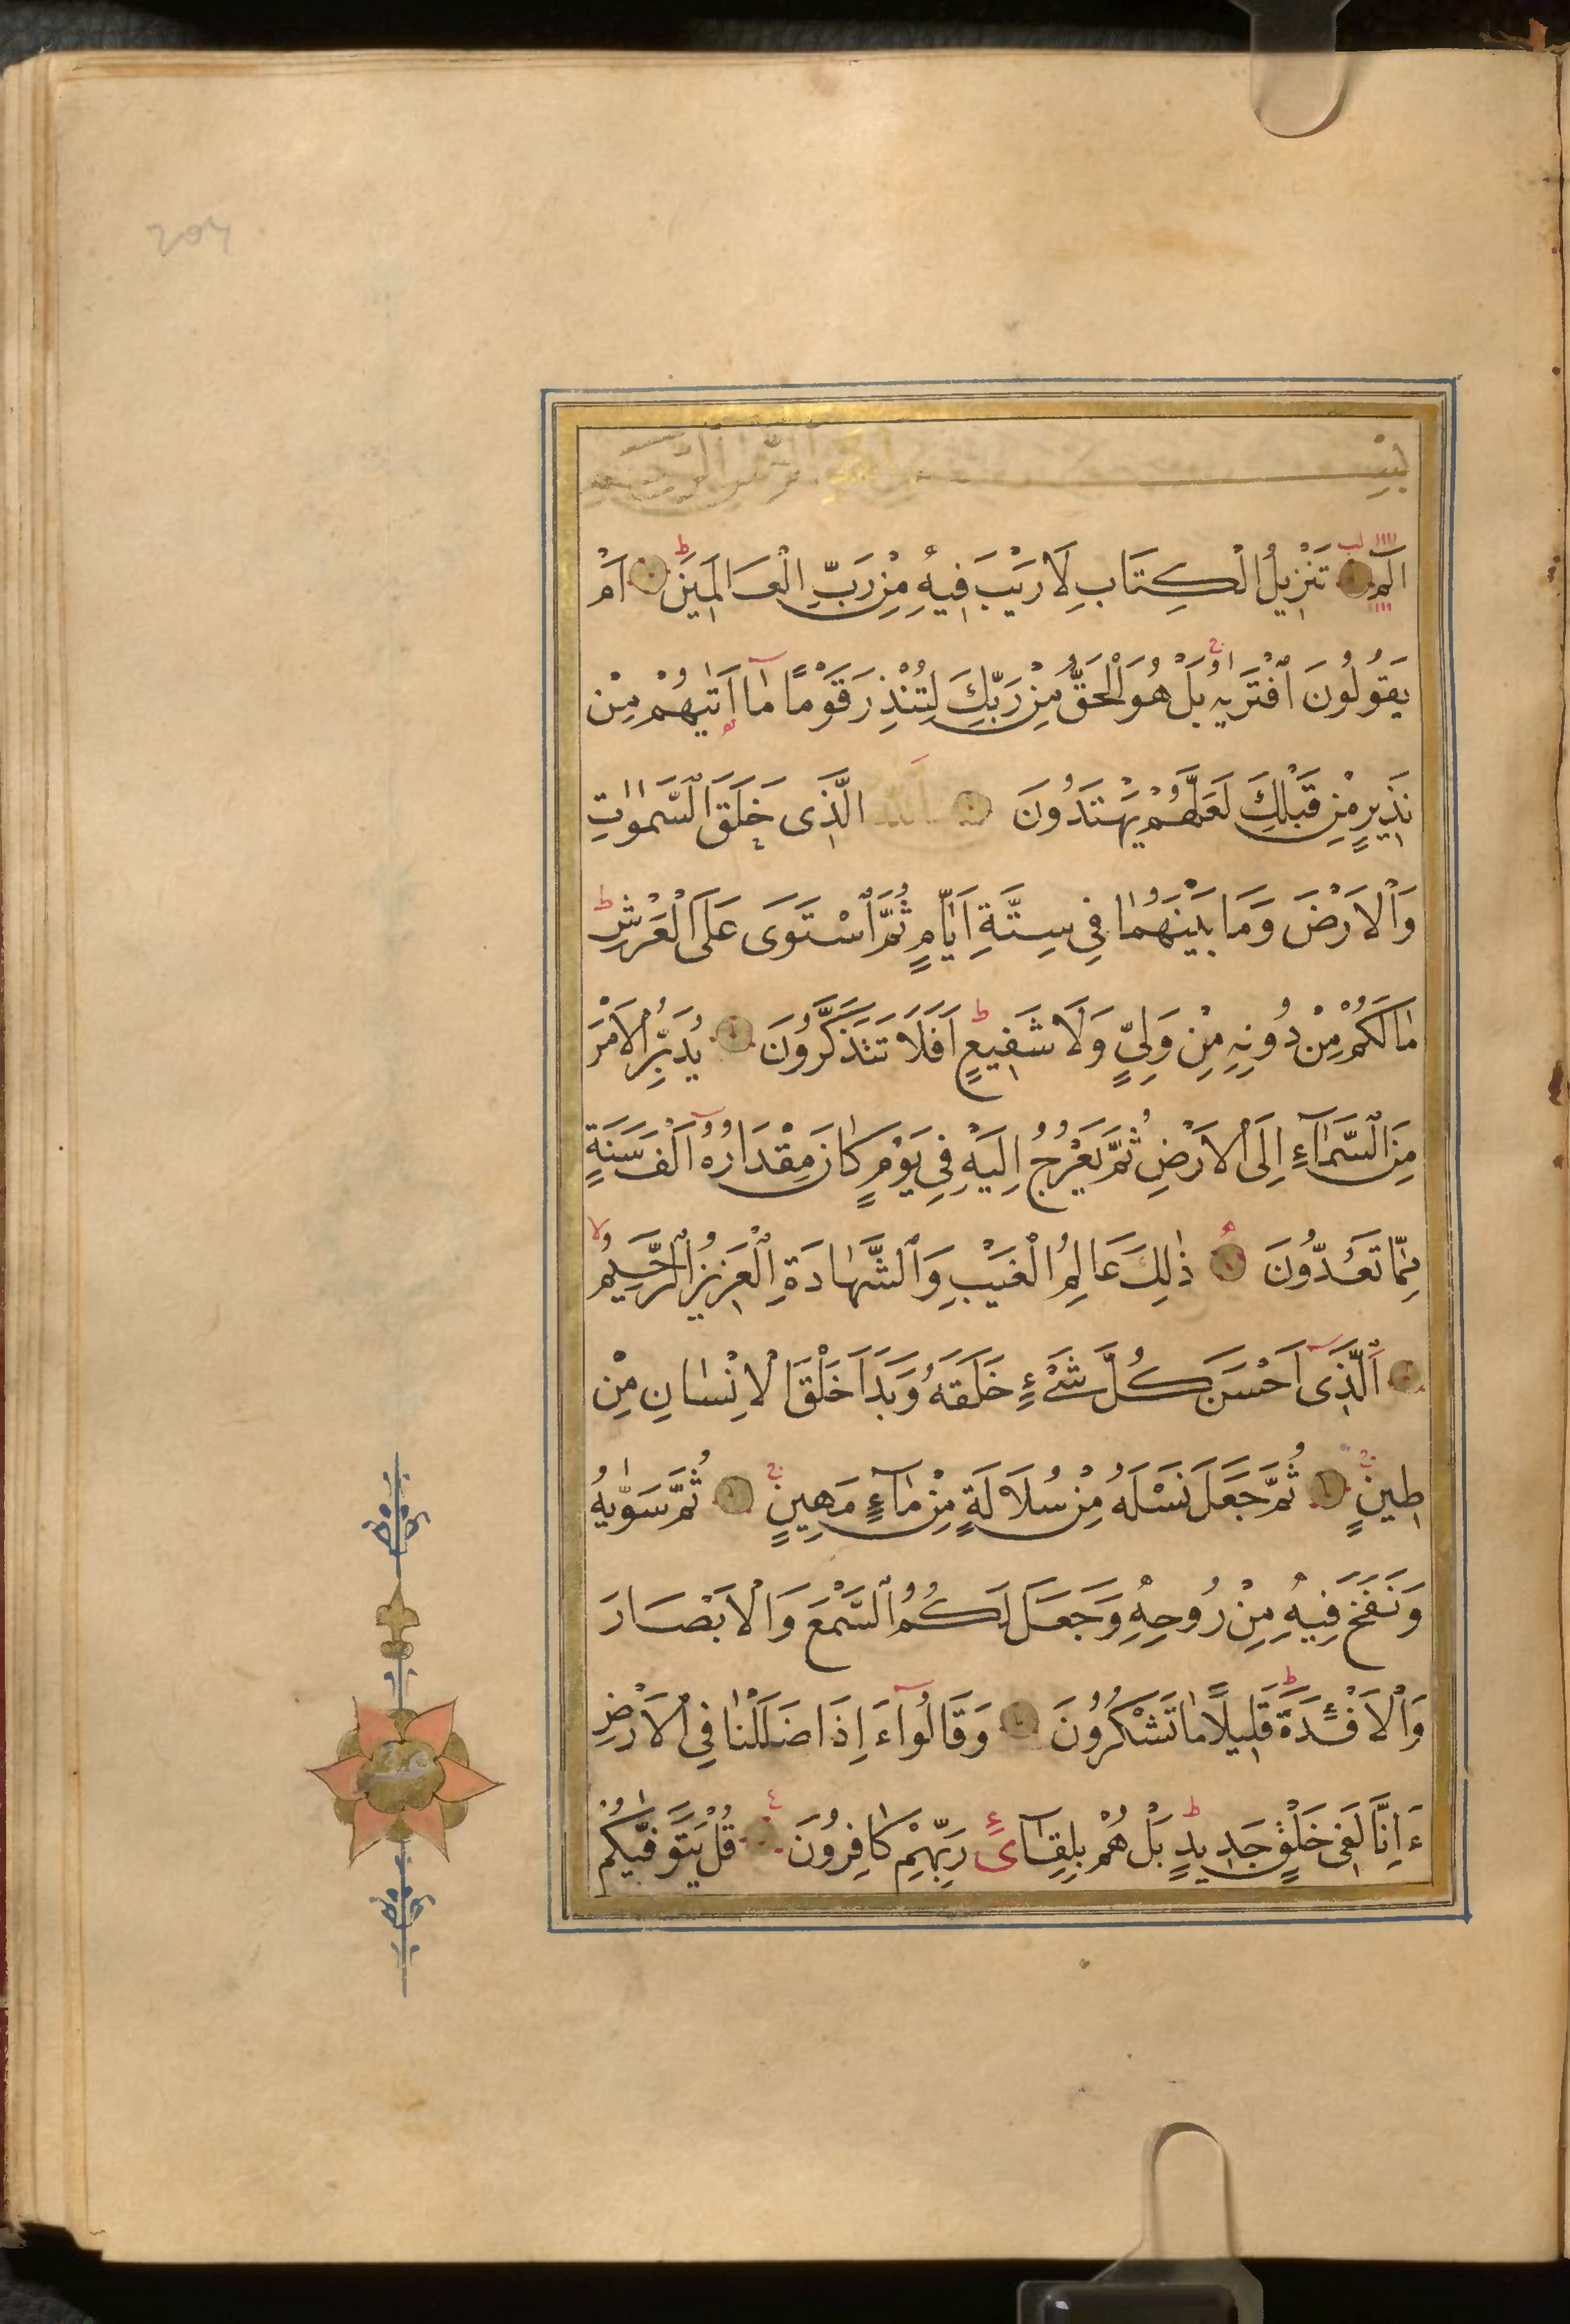 بِسْمِ اللّٰهِ الرَّحْمٰنِ الرَّحِيمِ
الٓمٓ تَنْزِيلُ الْكِتَابِ لَا رَيْبَ فِيهِ مِنْ رَبِّ الْعَالَمِينَ ط اَمْ
يَقُولُونَ افْتَرٰيهُ بَلْ هُوَ الْحَقُّ مِنْ رَبِّكَ لِتُنْذِرَ قَوْمًا مَآ اَتٰيهُمْ مِنْ
نَذِيرٍ مِنْ قَبْلِكَ لَعَلَّهُمْ يَهْتَدُونَ اَللّٰهُ الَّذِى خَلَقَ السَّمٰوٰتِ
وَالْاَرْضَ وَمَا بَيْنَهُمَا فِى سِتَّةِ اَيَّامٍ ثُمَّ اسْتَوَى عَلَى الْعَرْشِ ط
مَالَكُمْ مِنْ دُونِهِ مِنْ وَلِىٍّ وَلَا شَفِيعٍ ط اَفَلَا تَتَذَكَّرُونَ يُدَبِّرُ الْاَمْرَ
مِنَ السَّمَآءِ اِلَى الْاَرْضِ ثُمَّ يَعْرُجُ اِلَيْهِ فِى يَوْمٍ كَانَ مِقْدَارُهُٓ اَلْفَ سَنَةٍ
مِمَّا تَعُدُّونَ ذٰلِكَ عَالِمُ الْغَيْبِ وَالشَّهَادَةِ الْعَزِيزُ الرَّحِيمُ لا
اَلَّذِىٓ اَحْسَنَ كُلَّ شَىْءٍ خَلَقَهُ وَبَدَاَ خَلْقَ الْاِنْسَانِ مِنْ
طِينٍ ج ثُمَّ جَعَلَ نَسْلَهُ مِنْ سُلَالَةٍ مِنْ مَآءٍ مَهِينٍ ج ثُمَّ سَوّٰيهُ
وَنَفَخَ فِيهِ مِنْ رُوحِهِ وَجَعَلَ لَكُمُ السَّمْعَ وَالْاَبْصَارَ
وَالْاَفْئِدَةَ ط قَلِيلًا مَا تَشْكُرُونَ وَقَالُوٓا ءَاِذَا ضَلَلْنَا فِى الْاَرْضِ
ءَاِنَّا لَفِى خَلْقٍ جَدِيدٍ ط بَلْ هُمْ بِلِقَآئِ رَبِّهِمْ كَافِرُونَ قُلْ يَتَوَفّٰيكُمْ